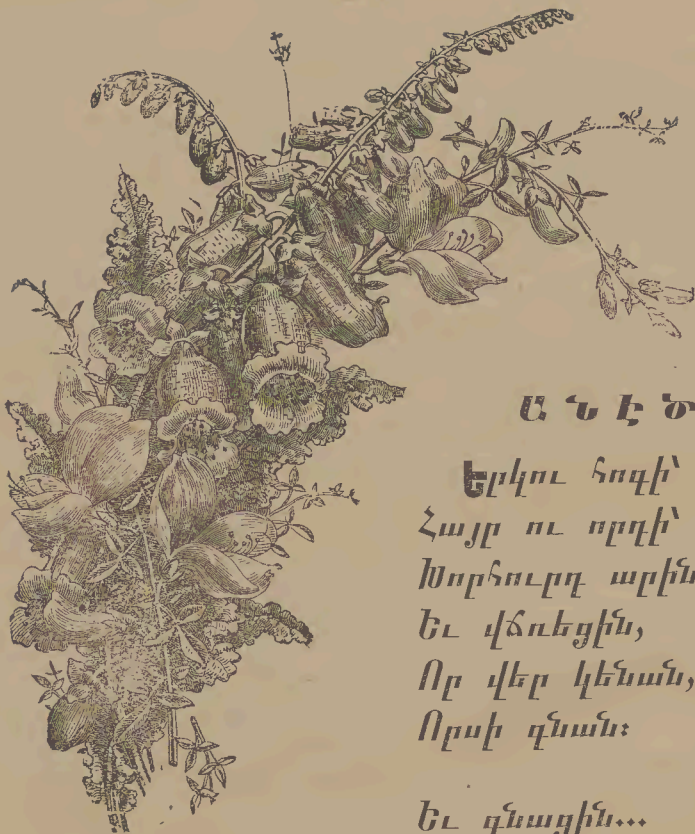 ԱՆԷԾ
Երկու հոգի՝
Հայր ու որդի՝
Խորհուրդ արին
Եւ վճռեցին,
Որ վեր կենան,
Որսի գնան։
Եւ գնացին...